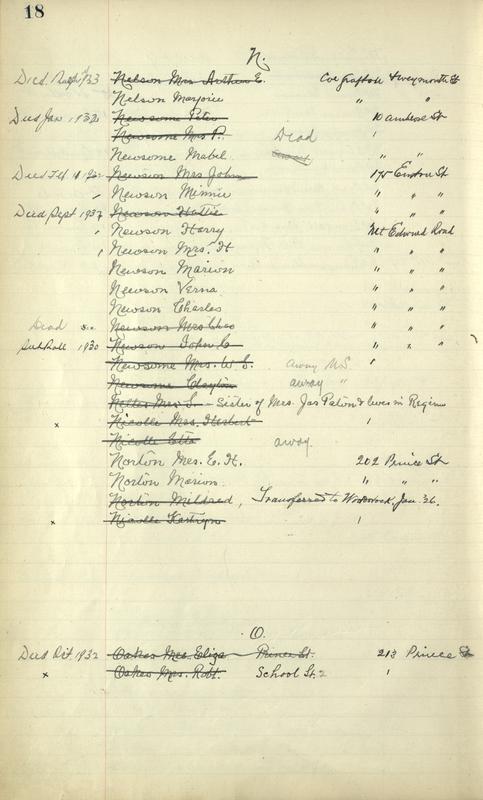 18
N.
Died 1933 Nelson Mrs Arthur E. Cor Grafton & Weymouth St
Nelson Marjorie " "
Died Jan 1932 Newsome Peter 10 Amherst St
Newsome Mrs P. Dead
Newsome Mabel " "
Died Feb Newson Mrs John 175 Euston St
Newson Minnie " " "
Died Sept 1937 Newson Hattie " " "
Newson Harry Mt Edward Road
Newson Mrs. H " " "
Newson Marion " " "
Newson Verna " " "
Newson Charles " " "
Dead Newson Mrs Chas " " "
1930 Newson John C " " "
Newsome Mrs. W. S. away U.S.
Newsome Clayton away "
Mrs S. - Sister of Mrs. Jas Paton & lives in Regina
x Nicolle Mrs. Herbert
Nicolle Etta away.
Norton Mrs. E. H. 202 Prince St
Norton Marion " " "
Norton Mildred, Transferred to Woodstock, Jan. 36.
x Nicolle Kathryn
O.
Died Oct. 1932 Oakes Mrs. Eliza Prince St. 213 Prince St
x Oakes Mrs. Robt. School St. 2